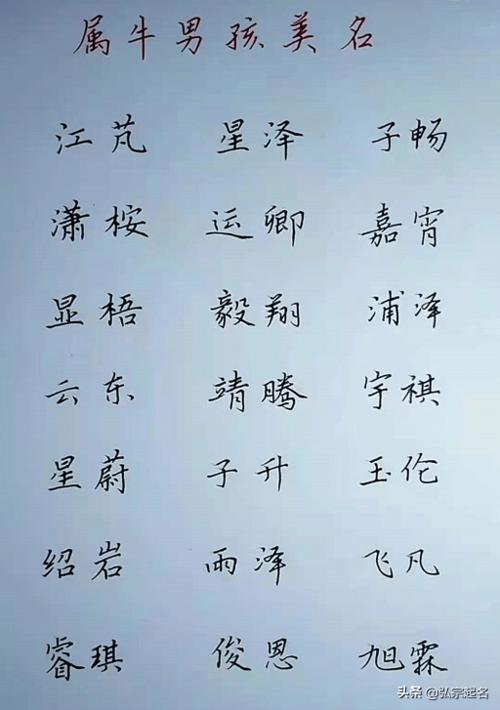 属牛男孩美名
江芃 星泽 子畅
潇桉 运卿 嘉宵
显梧 毅翔 浦泽
云东 靖腾 宇祺
星蔚 子升 玉伦
绍岩 雨泽 飞凡
睿琪 俊恩 旭霖
头条 @弘宗起名